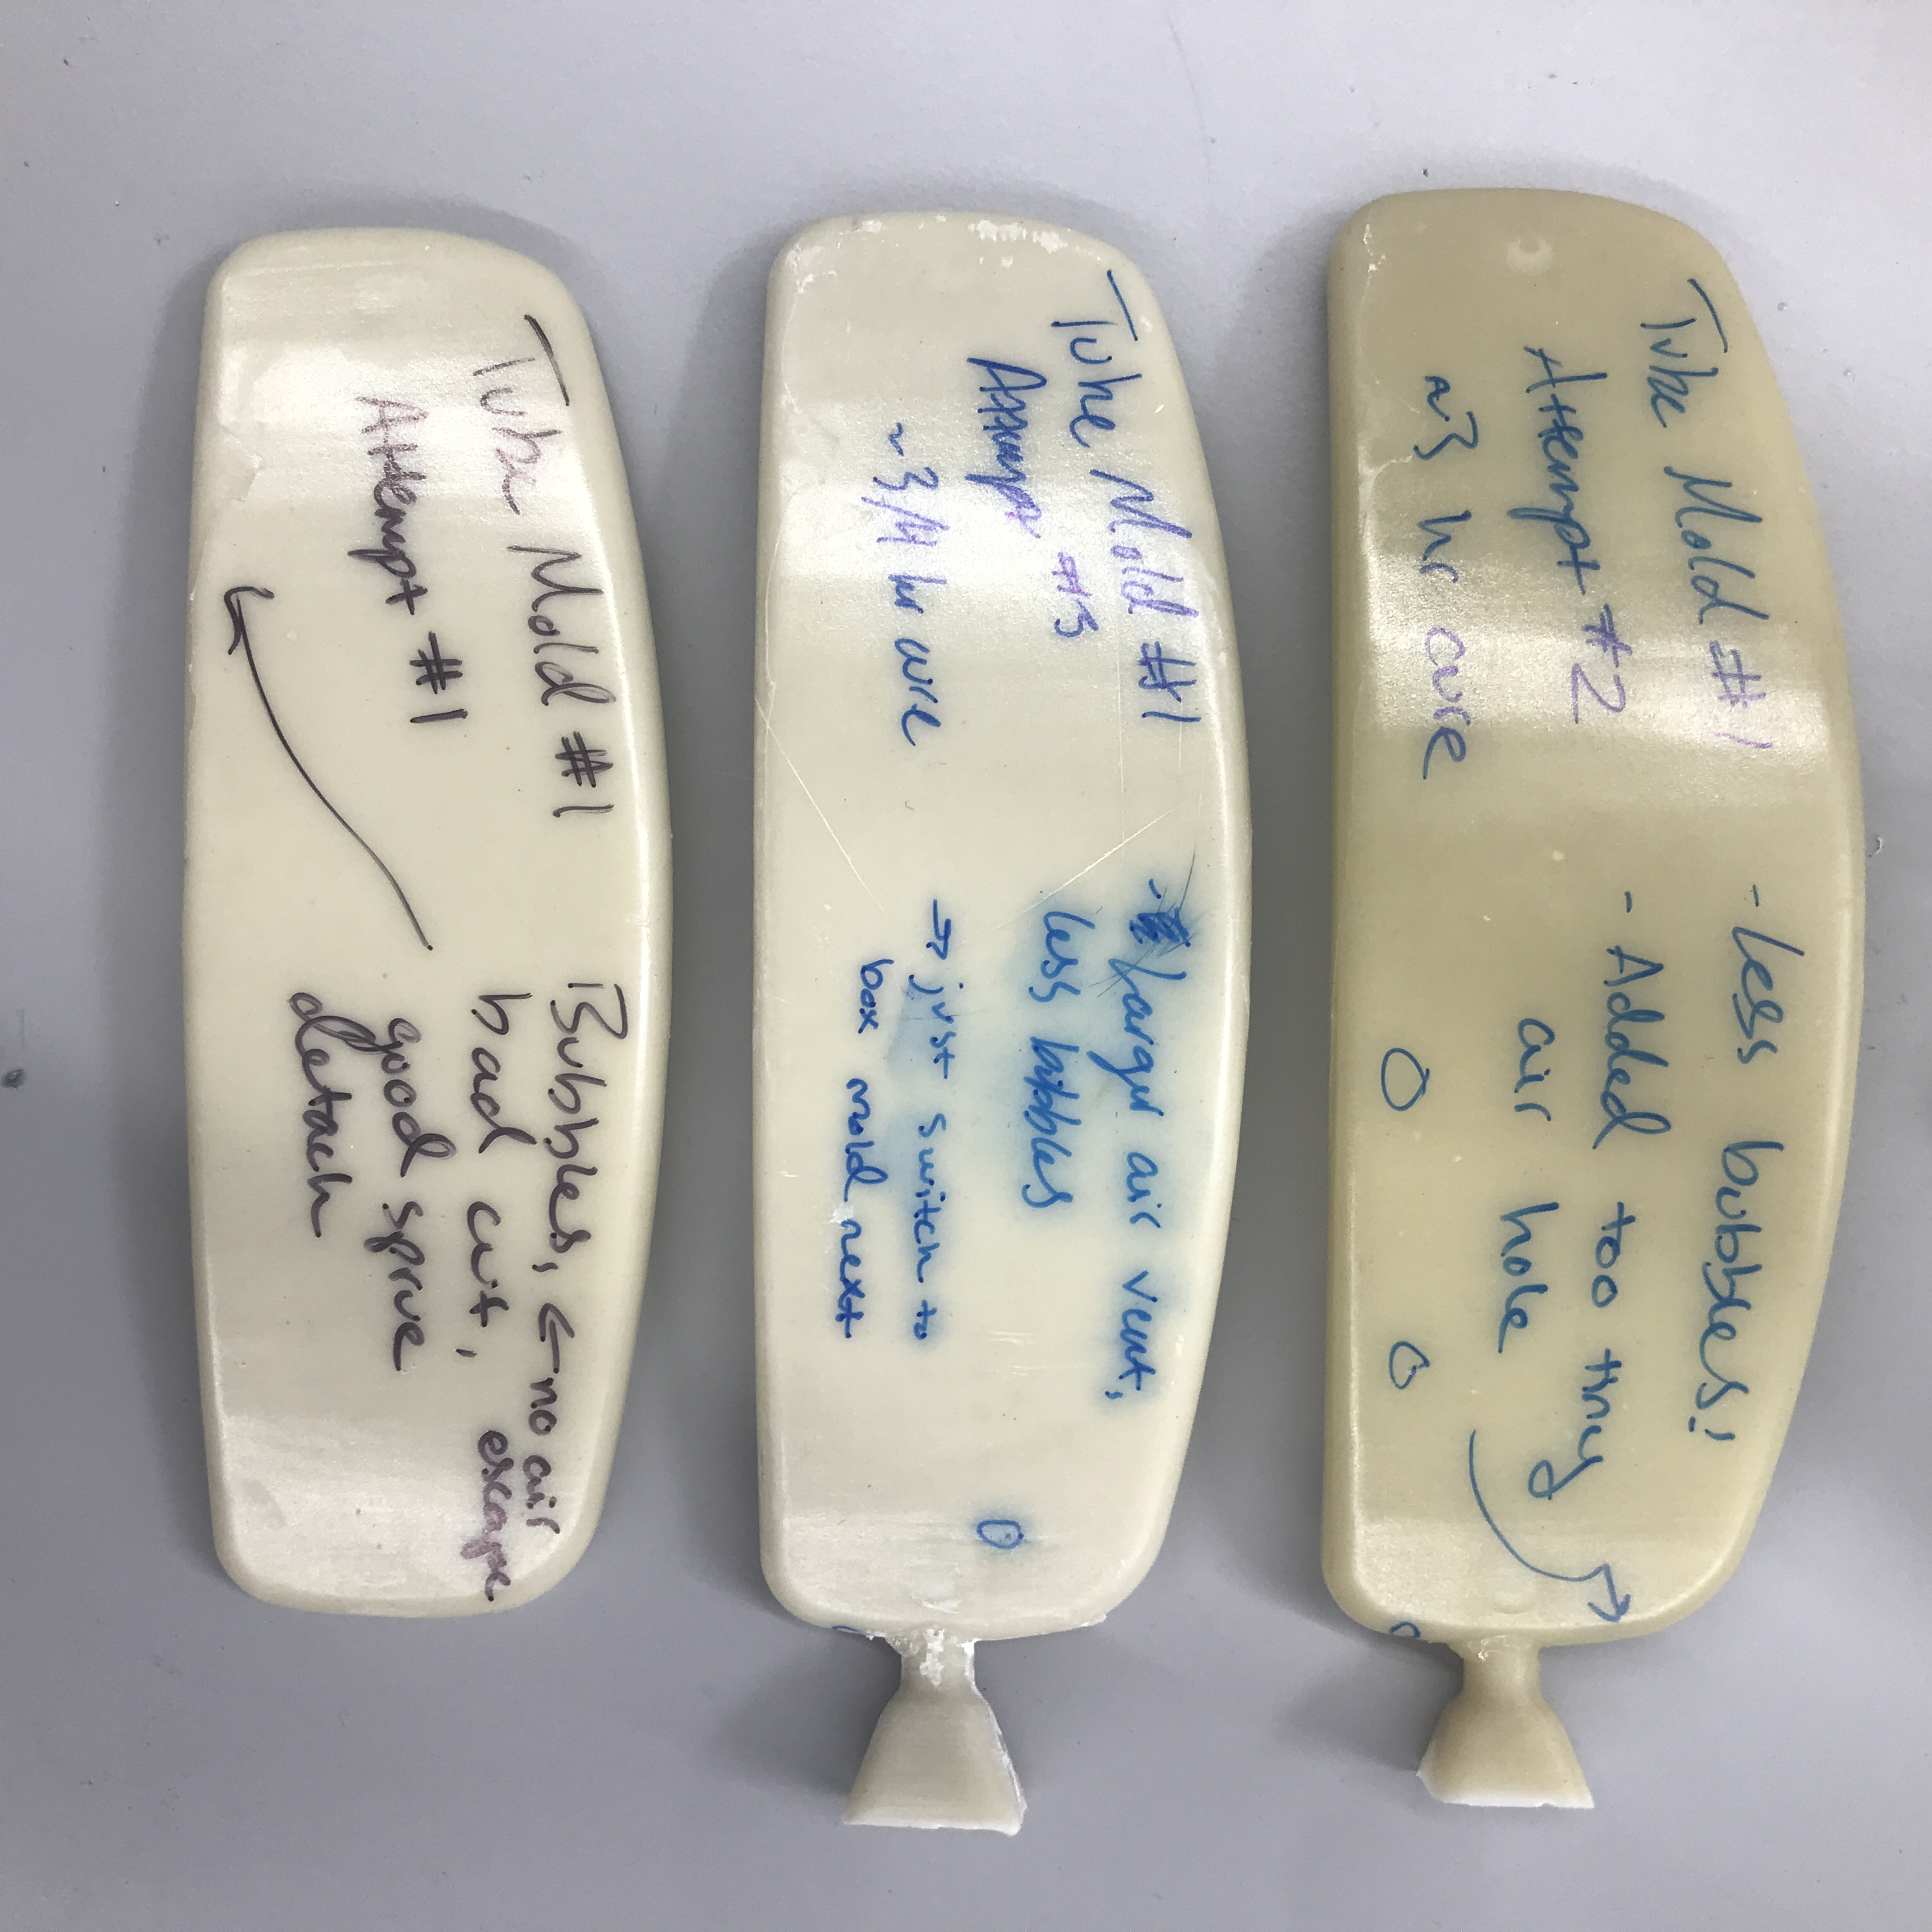 Tube Mold #1
Attempt #2
~3 hr cure
- Less bubbles!
- Added too tiny
air hole
Tube Mold #1
Attempt #3
~3/4 hr cure
- Larger air vent,
less bubbles
→ just switch to
box mold next
Tube Mold #1
Attempt #1
Bubbles, ← no air
escape
bad cut,
good sprue
detach